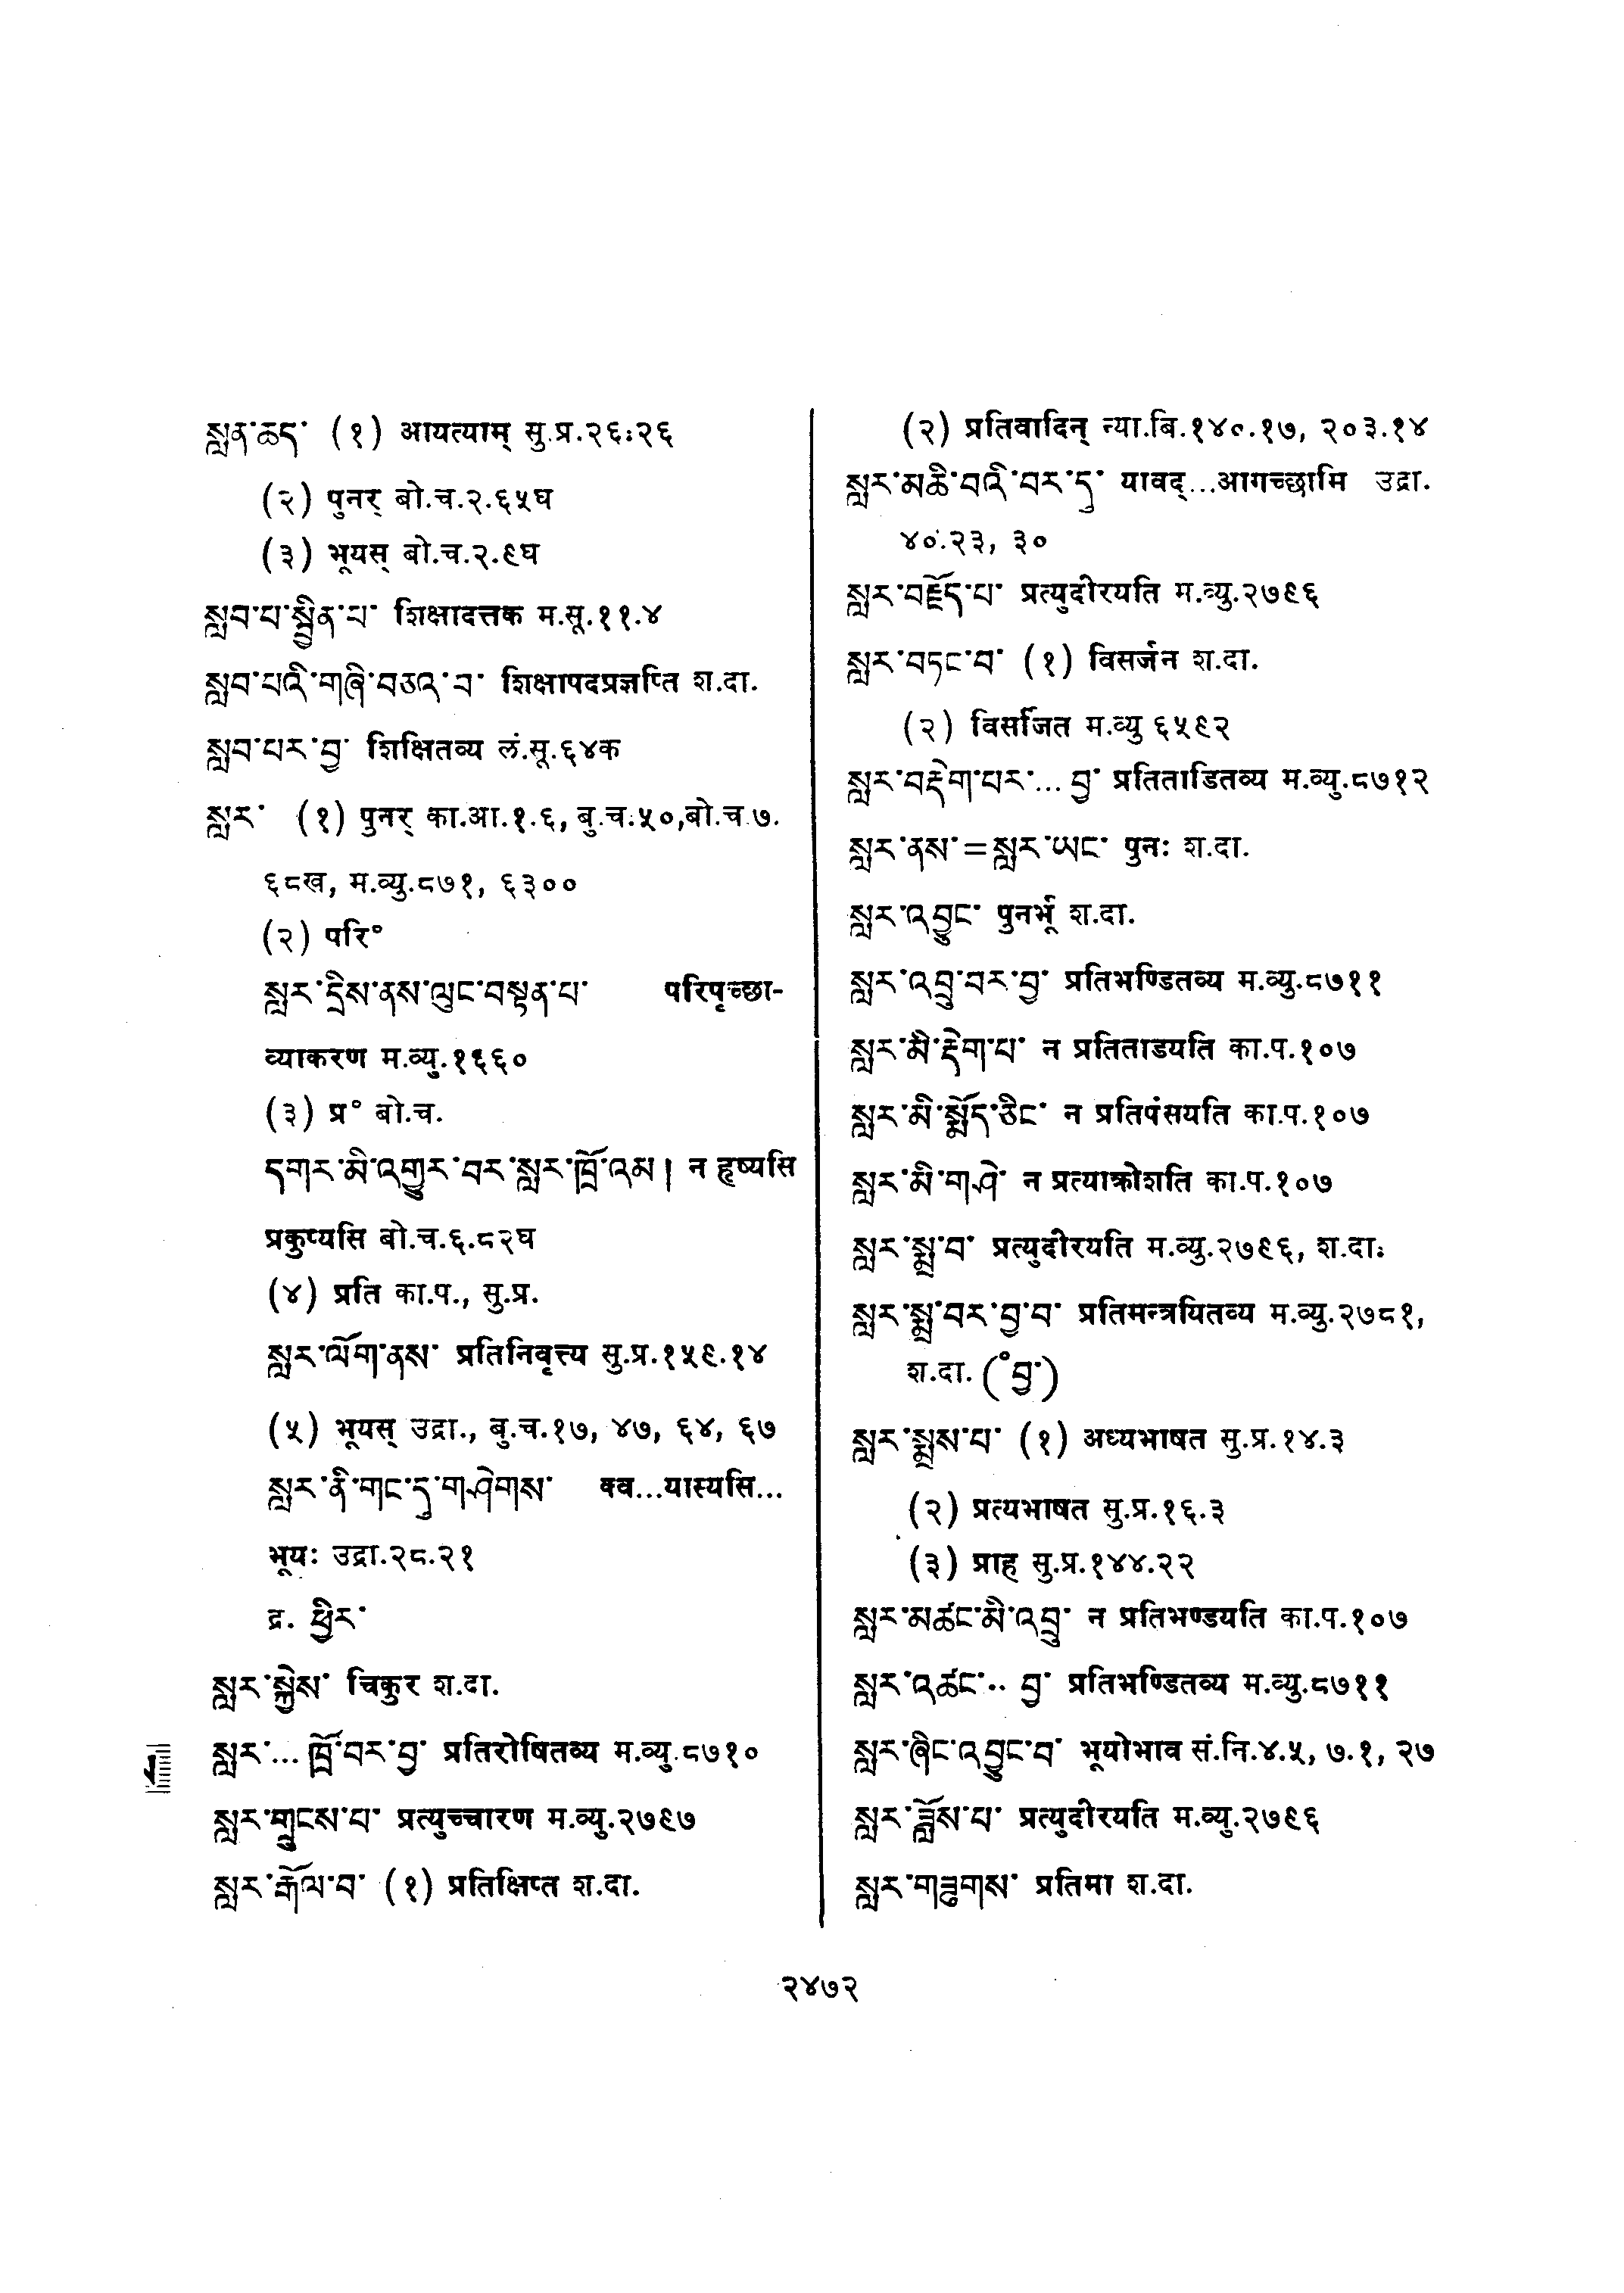 སླན་ཆད་ (१) आयत्याम् सु.प्र.२६ः२६
(२) पुनर् बो.च.२.६५घ
(३) भूयस् बो.च.२.९घ
སླབ་པ་སྦྱིན་པ་ शिक्षादत्तक म.सू.११.४
སླབ་པའི་གཞི་བཅའ་བ་ शिक्षापदप्रज्ञप्ति श.दा.
སླབ་པར་བྱ་ शिक्षितव्य लं.सू.६४क
སླར་ (१) पुनर् का.आ.१.६, बु.च.५०,बो.च.७.
६८ख, म.व्यु.८७१, ६३००
(२) परि°
སླར་དྲིས་ནས་ལུང་བསྟན་པ་ परिपृच्छा-
व्याकरण म.व्यु.१६६०
(३) प्र° बो.च.
དགར་མི་འགྱུར་བར་སླར་ཁྲོ་འམ། न हृष्यसि
प्रकुप्यसि बो.च.६.८२घ
(४) प्रति का.प., सु.प्र.
སླར་ལོག་ནས་ प्रतिनिवृत्त्य सु.प्र.१५९.१४
(५) भूयस् उद्रा., बु.च.१७, ४७, ६४, ६७
སླར་ནི་གང་དུ་གཤེགས་ क्व...यास्यसि...
भूयः उद्रा.२८.२१
द्र. ཕྱིར་
སླར་སྐྱེས་ चिकुर श.दा.
སླར་... ཁྲོ་བར་བྱ་ प्रतिरोषितव्य म.व्यु.८७१०
སླར་གླུངས་པ་ प्रत्युच्चारण म.व्यु.२७९७
སླར་རྒོལ་བ་ (१) प्रतिक्षिप्त श.दा.
(२) प्रतिवादिन् न्या.बि.१४०.१७, २०३.१४
སླར་མཆི་བའི་བར་དུ་ यावद्...आगच्छामि उद्रा.
४०.२३, ३०
སླར་བརྗོད་པ་ प्रत्युदीरयति म.व्यु.२७९६
སླར་བཏང་བ་ (१) विसर्जन श.दा.
(२) विसर्जित म.व्यु ६५९२
སླར་བརྡེག་པར་... བྱ་ प्रतिताडितव्य म.व्यु.८७१२
སླར་ནས་=སླར་ཡང་ पुनः श.दा.
སླར་འབྱུང་ पुनर्भू श.दा.
སླར་འབྲུ་བར་བྱ་ प्रतिभण्डितव्य म.व्यु.८७११
སླར་མི་རྡེག་པ་ न प्रतिताडयति का.प.१०७
སླར་མི་སྨོད་ཅིང་ न प्रतिपंसयति का.प.१०७
སླར་མི་གཤེ་ न प्रत्याक्रोशति का.प.१०७
སླར་སྨྲ་བ་ प्रत्युदीरयति म.व्यु.२७९६, श.दा.
སླར་སྨྲ་བར་བྱ་བ་ प्रतिमन्त्रयितव्य म.व्यु.२७८१,
श.दा. (°བྱ་)
སླར་སྨྲས་པ་ (१) अध्यभाषत सु.प्र.१४.३
(२) प्रत्यभाषत सु.प्र.१६.३
(३) प्राह सु.प्र.१४४.२२
སླར་མཚང་མི་འབྲུ་ न प्रतिभण्डयति का.प.१०७
སླར་འཚང་.. བྱ་ प्रतिभण्डितव्य म.व्यु.८७११
སླར་ཞིང་འབྱུང་བ་ भूयोभाव सं.नि.४.५, ७.१, २७
སླར་ཟློས་པ་ प्रत्युदीरयति म.व्यु.२७९६
སླར་གཟུགས་ प्रतिमा श.दा.
२४७२